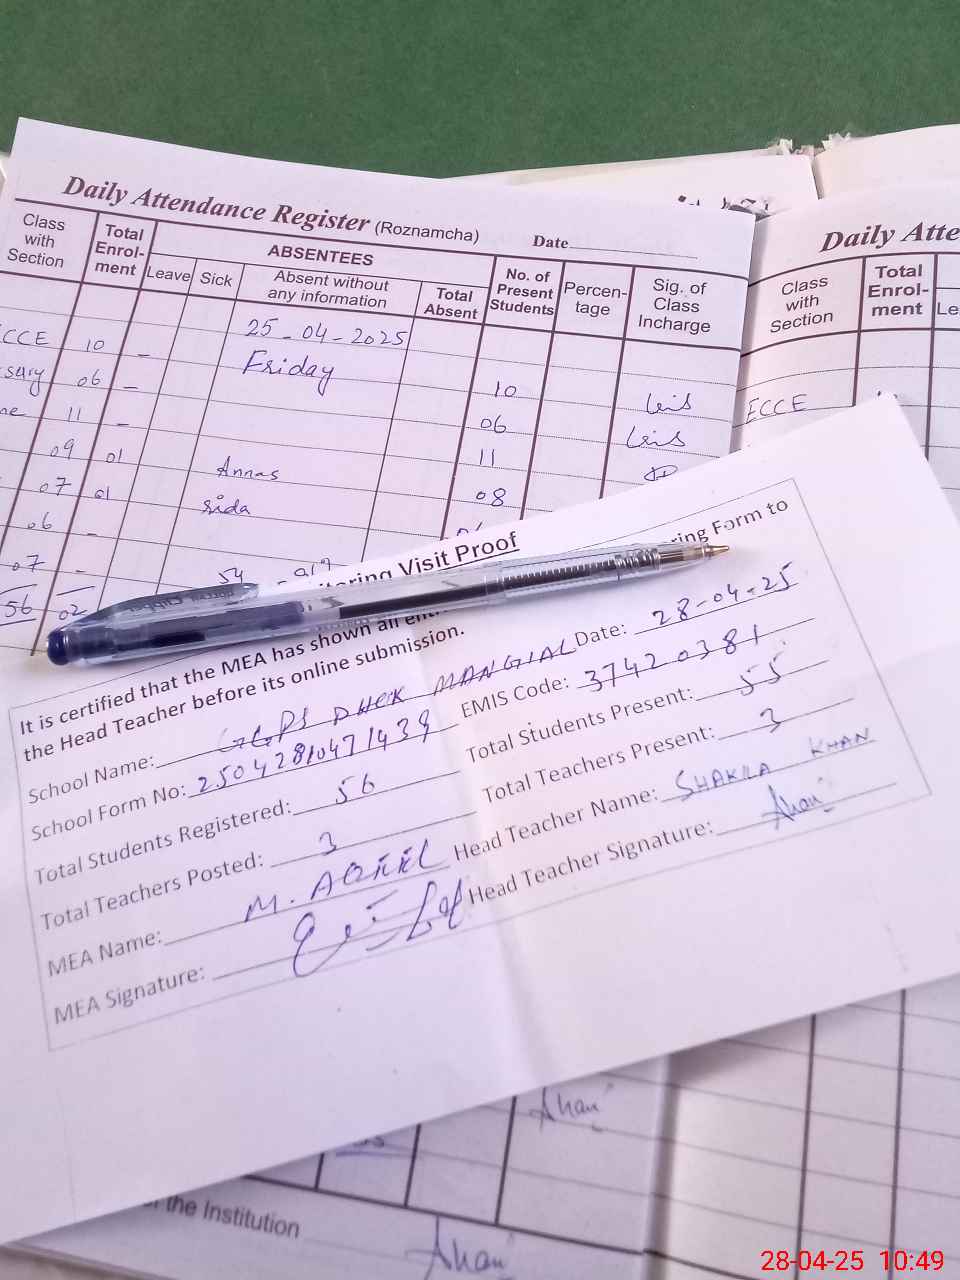 Daily Attendance Register (Roznamcha) Date
Class with Section Total Enrol-ment ABSENTEES No. of Present Students Percen-tage Sig. of Class Incharge
Leave Sick Absent without any information Total Absent
25-04-2025
CCE 10 - Friday 10
06 - 06
11 - 11
09 01 Annas 08
07 01 Sida
06 -
07 -
56 02
Daily Atte
Class with Section Total Enrol-ment Le
ECCE
Visit Proof
ring Form to
It is certified that the MEA has shown all
the Head Teacher before its online submission.
School Name: GGPS DHOK MANGIAL Date: 28-04-25
School Form No: 25042810471439 EMIS Code: 37420381
Total Students Registered: 56 Total Students Present: 55
Total Teachers Posted: 3 Total Teachers Present: 3
MEA Name: M. AQEEL Head Teacher Name: SHAKILA KHAN
MEA Signature: Head Teacher Signature:
the Institution
28-04-25 10:49